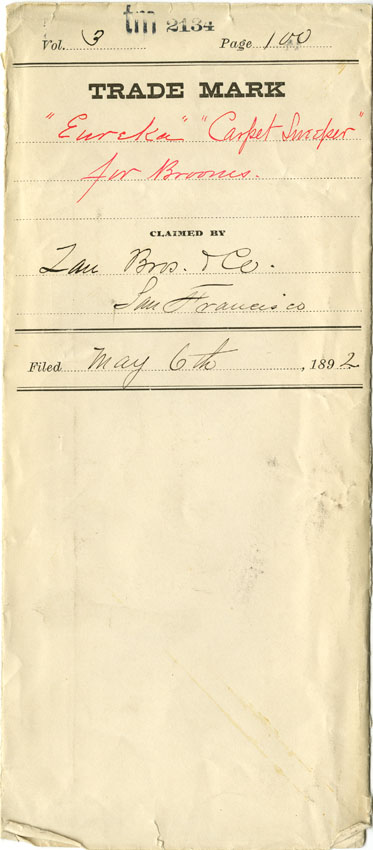 tm 2134
Vol. 3 Page 100
TRADE MARK
"Eureka" "Carpet Sweeper"
for Brooms.
CLAIMED BY
Zan Bros. & Co.
San Francisco
Filed May 6th, 1892